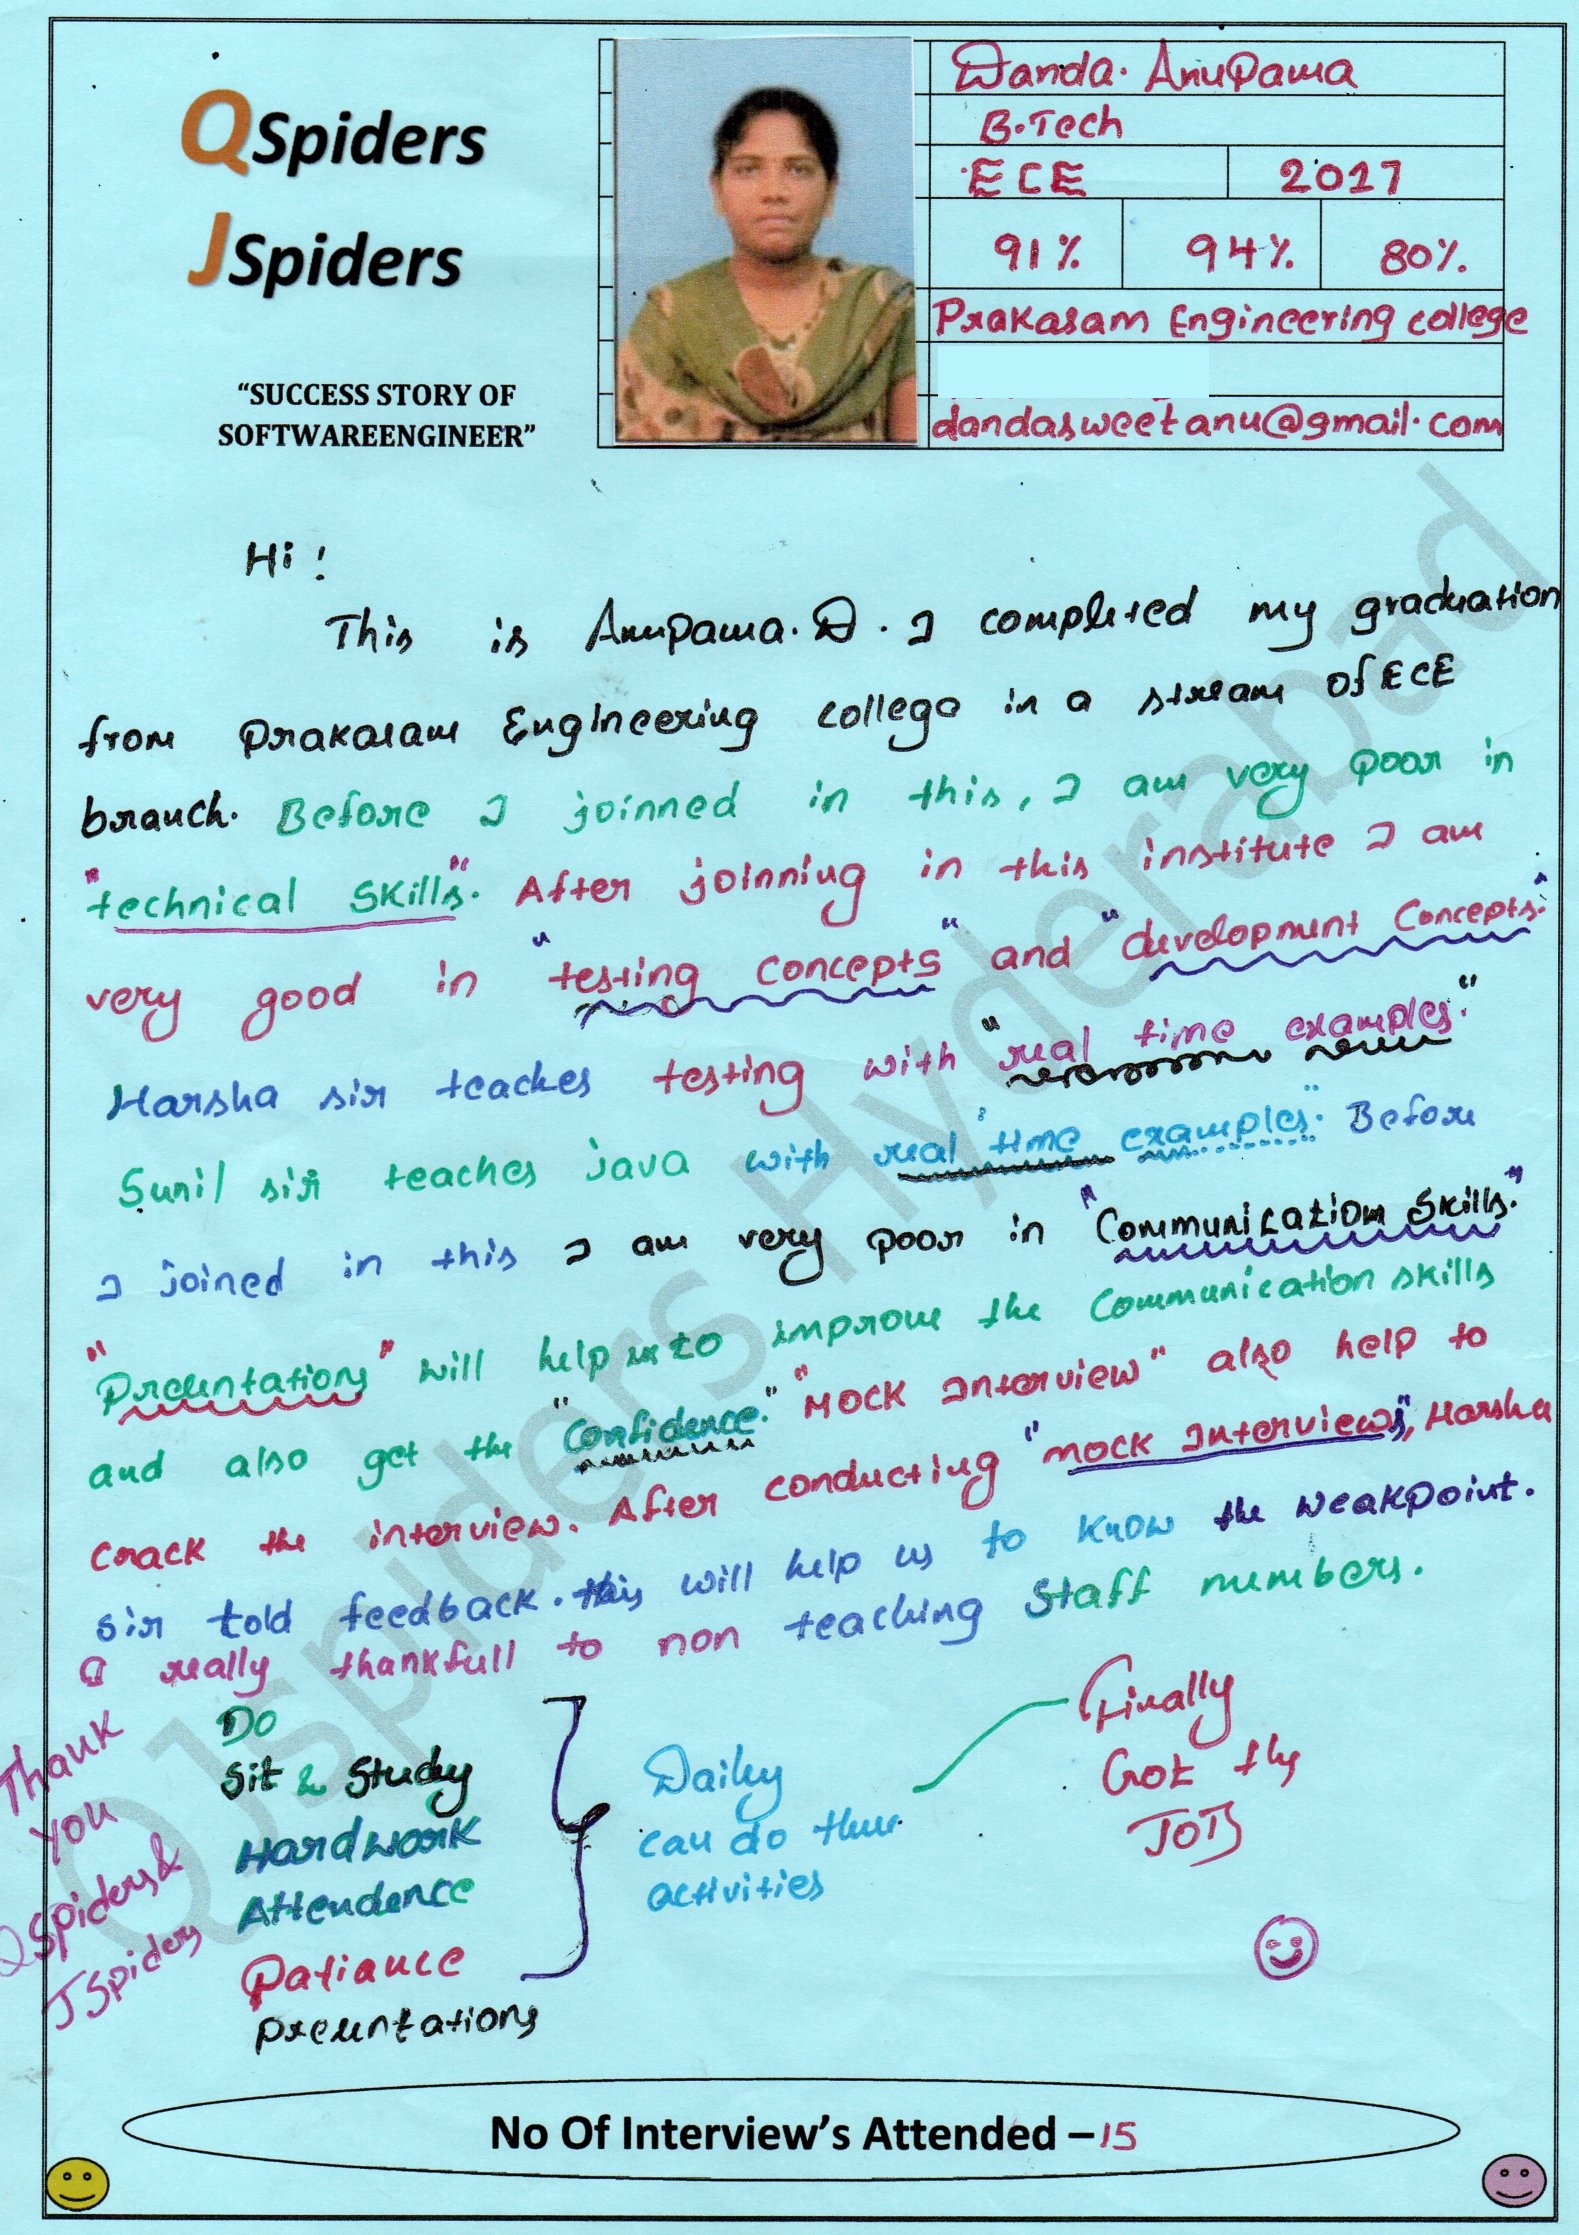 QSpiders
JSpiders
“SUCCESS STORY OF
SOFTWAREENGINEER”
Danda. Anupama
B.Tech
ECE 2017
91% 94% 80%
Prakasam Engineering college
dandasweetanu@gmail.com
Hi!
This is Anupama.D. I completed my graduation
from Prakasam Engineering college in a stream of ECE
branch. Before I joinned in this, I am very poor in
"technical skills". After joinning in this institute I am
very good in "testing concepts" and "development Concepts."
Harsha sir teaches testing with "real time examples."
Sunil sir teaches java with real "time examples". Before
I joined in this I am very poor in "Communication Skills."
"Presentations" will help us to improve the Communication skills
and also get the "Confidence." "Mock Interview" also help to
crack the interview. After conducting "mock Interviews", Harsha
sir told feedback. this will help us to know the weakpoint.
I really thankfull to non teaching Staff numbers.
Do
Sit & Study
Hardwork
Attendence
Patiance
Presentations
Daily
can do these
activities
Finally
Got the
JOB
Thank
you
Qspiders &
JSpiders
QJspiders Hyderabad
No Of Interview’s Attended – 15